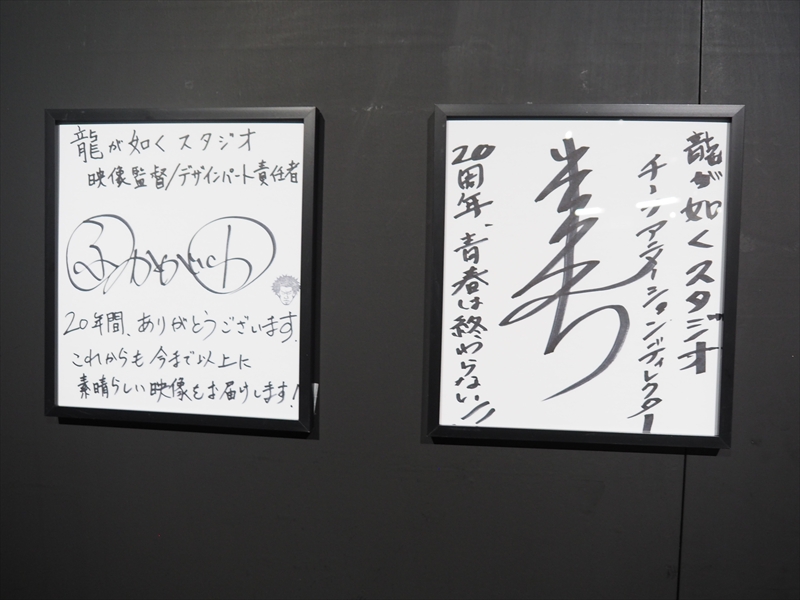 龍が如くスタジオ
映像監督/デザインパート責任者
20年間、ありがとうございます。
これからも今まで以上に
素晴らしい映像をお届けします!
龍が如くスタジオ
チーフアクションディレクター
20周年、青春は終わらない!!